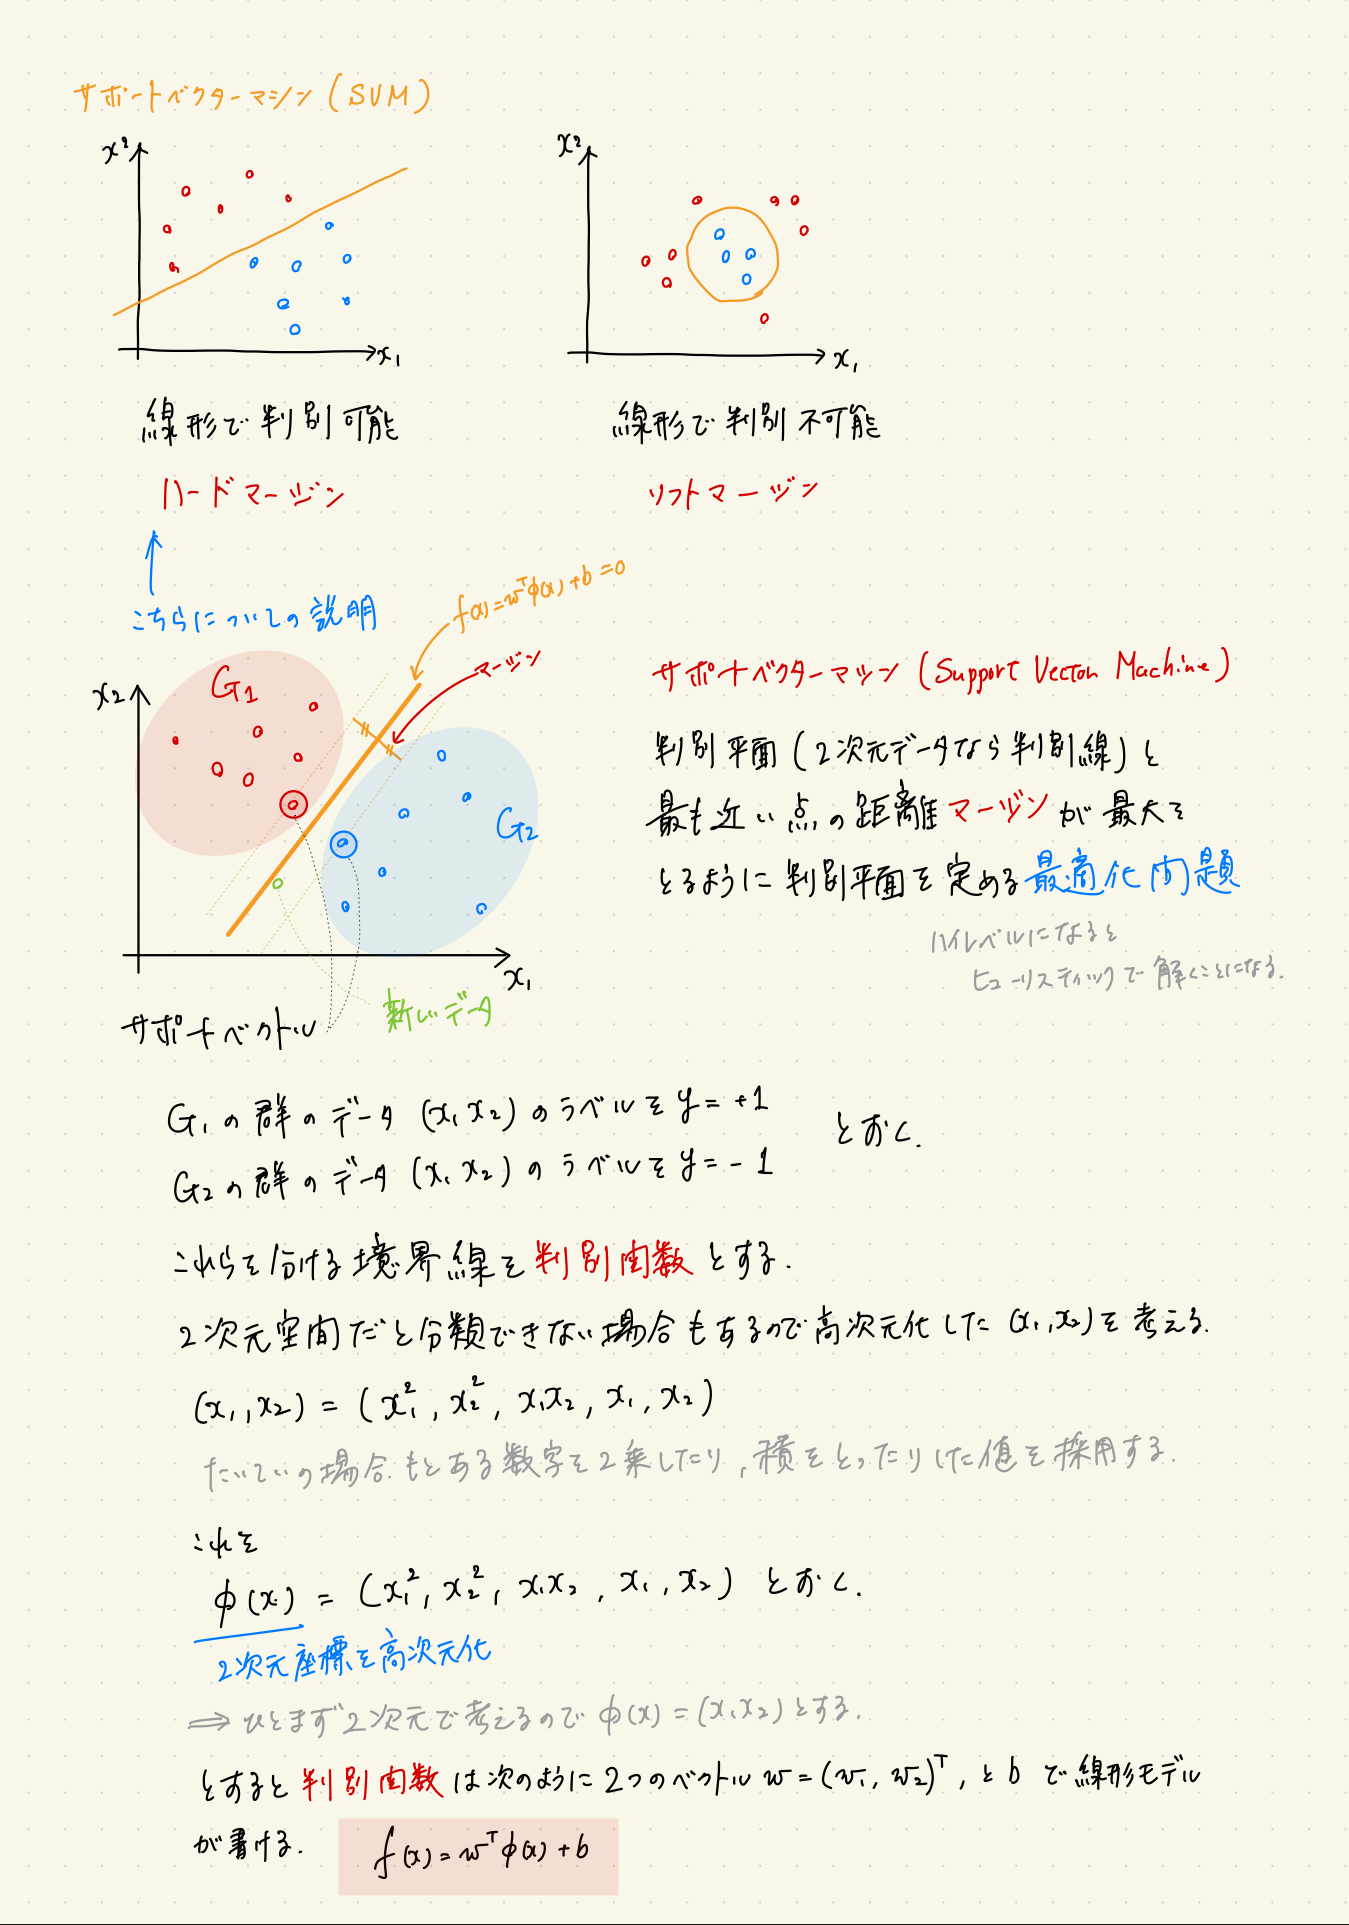 サポートベクターマシン (SVM)
x2
x1
x2
x1
線形で判別可能
線形で判別不可能
ハードマージン
ソフトマージン
こちらについての説明
f(x)=w^Tφ(x)+b=0
マージン
G1
G2
x2
x1
サポートベクトル
新しいデータ
サポートベクターマシン (Support Vector Machine)
判別平面 (2次元データなら判別線) と
最も近い点の距離マージンが最大を
とるように判別平面を定める最適化問題
ハイレベルになると
ヒューリスティックで解くことになる.
G1の群のデータ (x1 x2) のラベルを y = +1
G2の群のデータ (x1 x2) のラベルを y = -1
とおく.
これらを分ける境界線を判別関数とする.
2次元空間だと分類できない場合もあるので高次元化した (x1, x2) を考える.
(x1, x2) = (x1^2, x2^2, x1x2, x1, x2)
たいていの場合. もとある数字を2乗したり, 積をとったりした値を採用する.
これを
φ(x) = (x1^2, x2^2, x1x2, x1, x2) とおく.
2次元座標を高次元化
⇒ ひとまず2次元で考えるので φ(x) = (x1 x2) とする.
とすると判別関数は次のように2つのベクトル w = (w1, w2)^T, と b で線形モデル
が書ける.
f(x) = w^T φ(x) + b